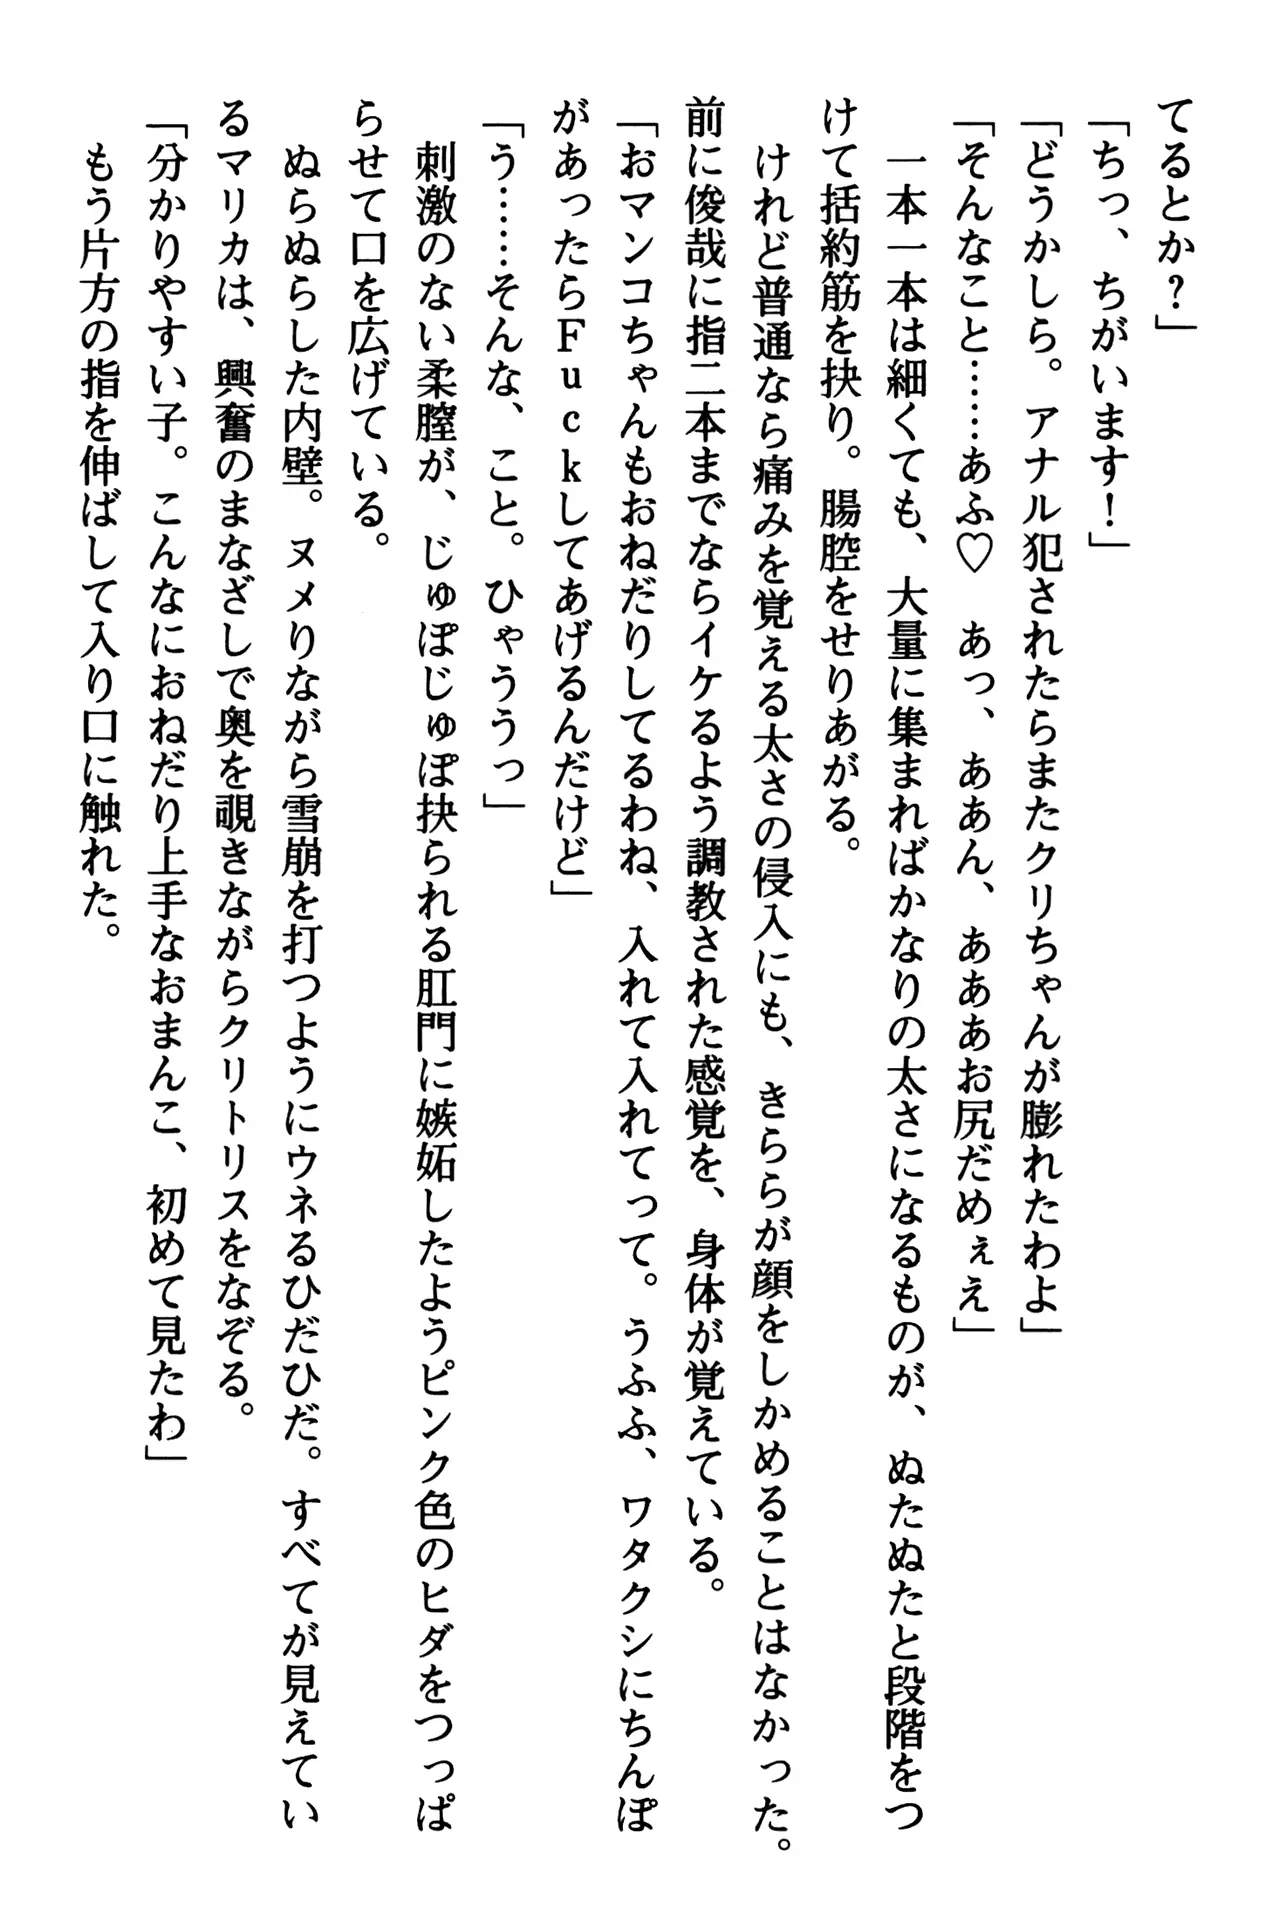 てるとか？」
「ちっ、ちがいます！」
「どうかしら。アナル犯されたらまたクリちゃんが膨れたわよ」
「そんなこと……あふ♡　あっ、ああん、あああお尻だめぇえ」
　一本一本は細くても、大量に集まればかなりの太さになるものが、ぬたぬたと段階をつ
けて括約筋を抉り。腸腔をせりあがる。
　けれど普通なら痛みを覚える太さの侵入にも、きららが顔をしかめることはなかった。
前に俊哉に指二本までならイケるよう調教された感覚を、身体が覚えている。
「おマンコちゃんもおねだりしてるわね、入れて入れてって。うふふ、ワタクシにちんぽ
があったらFuckしてあげるんだけど」
「う……そんな、こと。ひゃううっ」
　刺激のない柔膣が、じゅぽじゅぽ抉られる肛門に嫉妬したようピンク色のヒダをつっぱ
らせて口を広げている。
　ぬらぬらした内壁。ヌメりながら雪崩を打つようにウネるひだひだ。すべてが見えてい
るマリカは、興奮のまなざしで奥を覗きながらクリトリスをなぞる。
「分かりやすい子。こんなにおねだり上手なおまんこ、初めて見たわ」
　もう片方の指を伸ばして入り口に触れた。